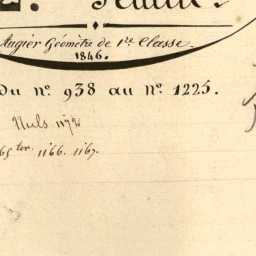 2. Feuille.
Augier Géomètre de 1re Classe.
1846.
du no. 938 au no. 1225.
Nuls 1172
65 ter. 1166. 1167.